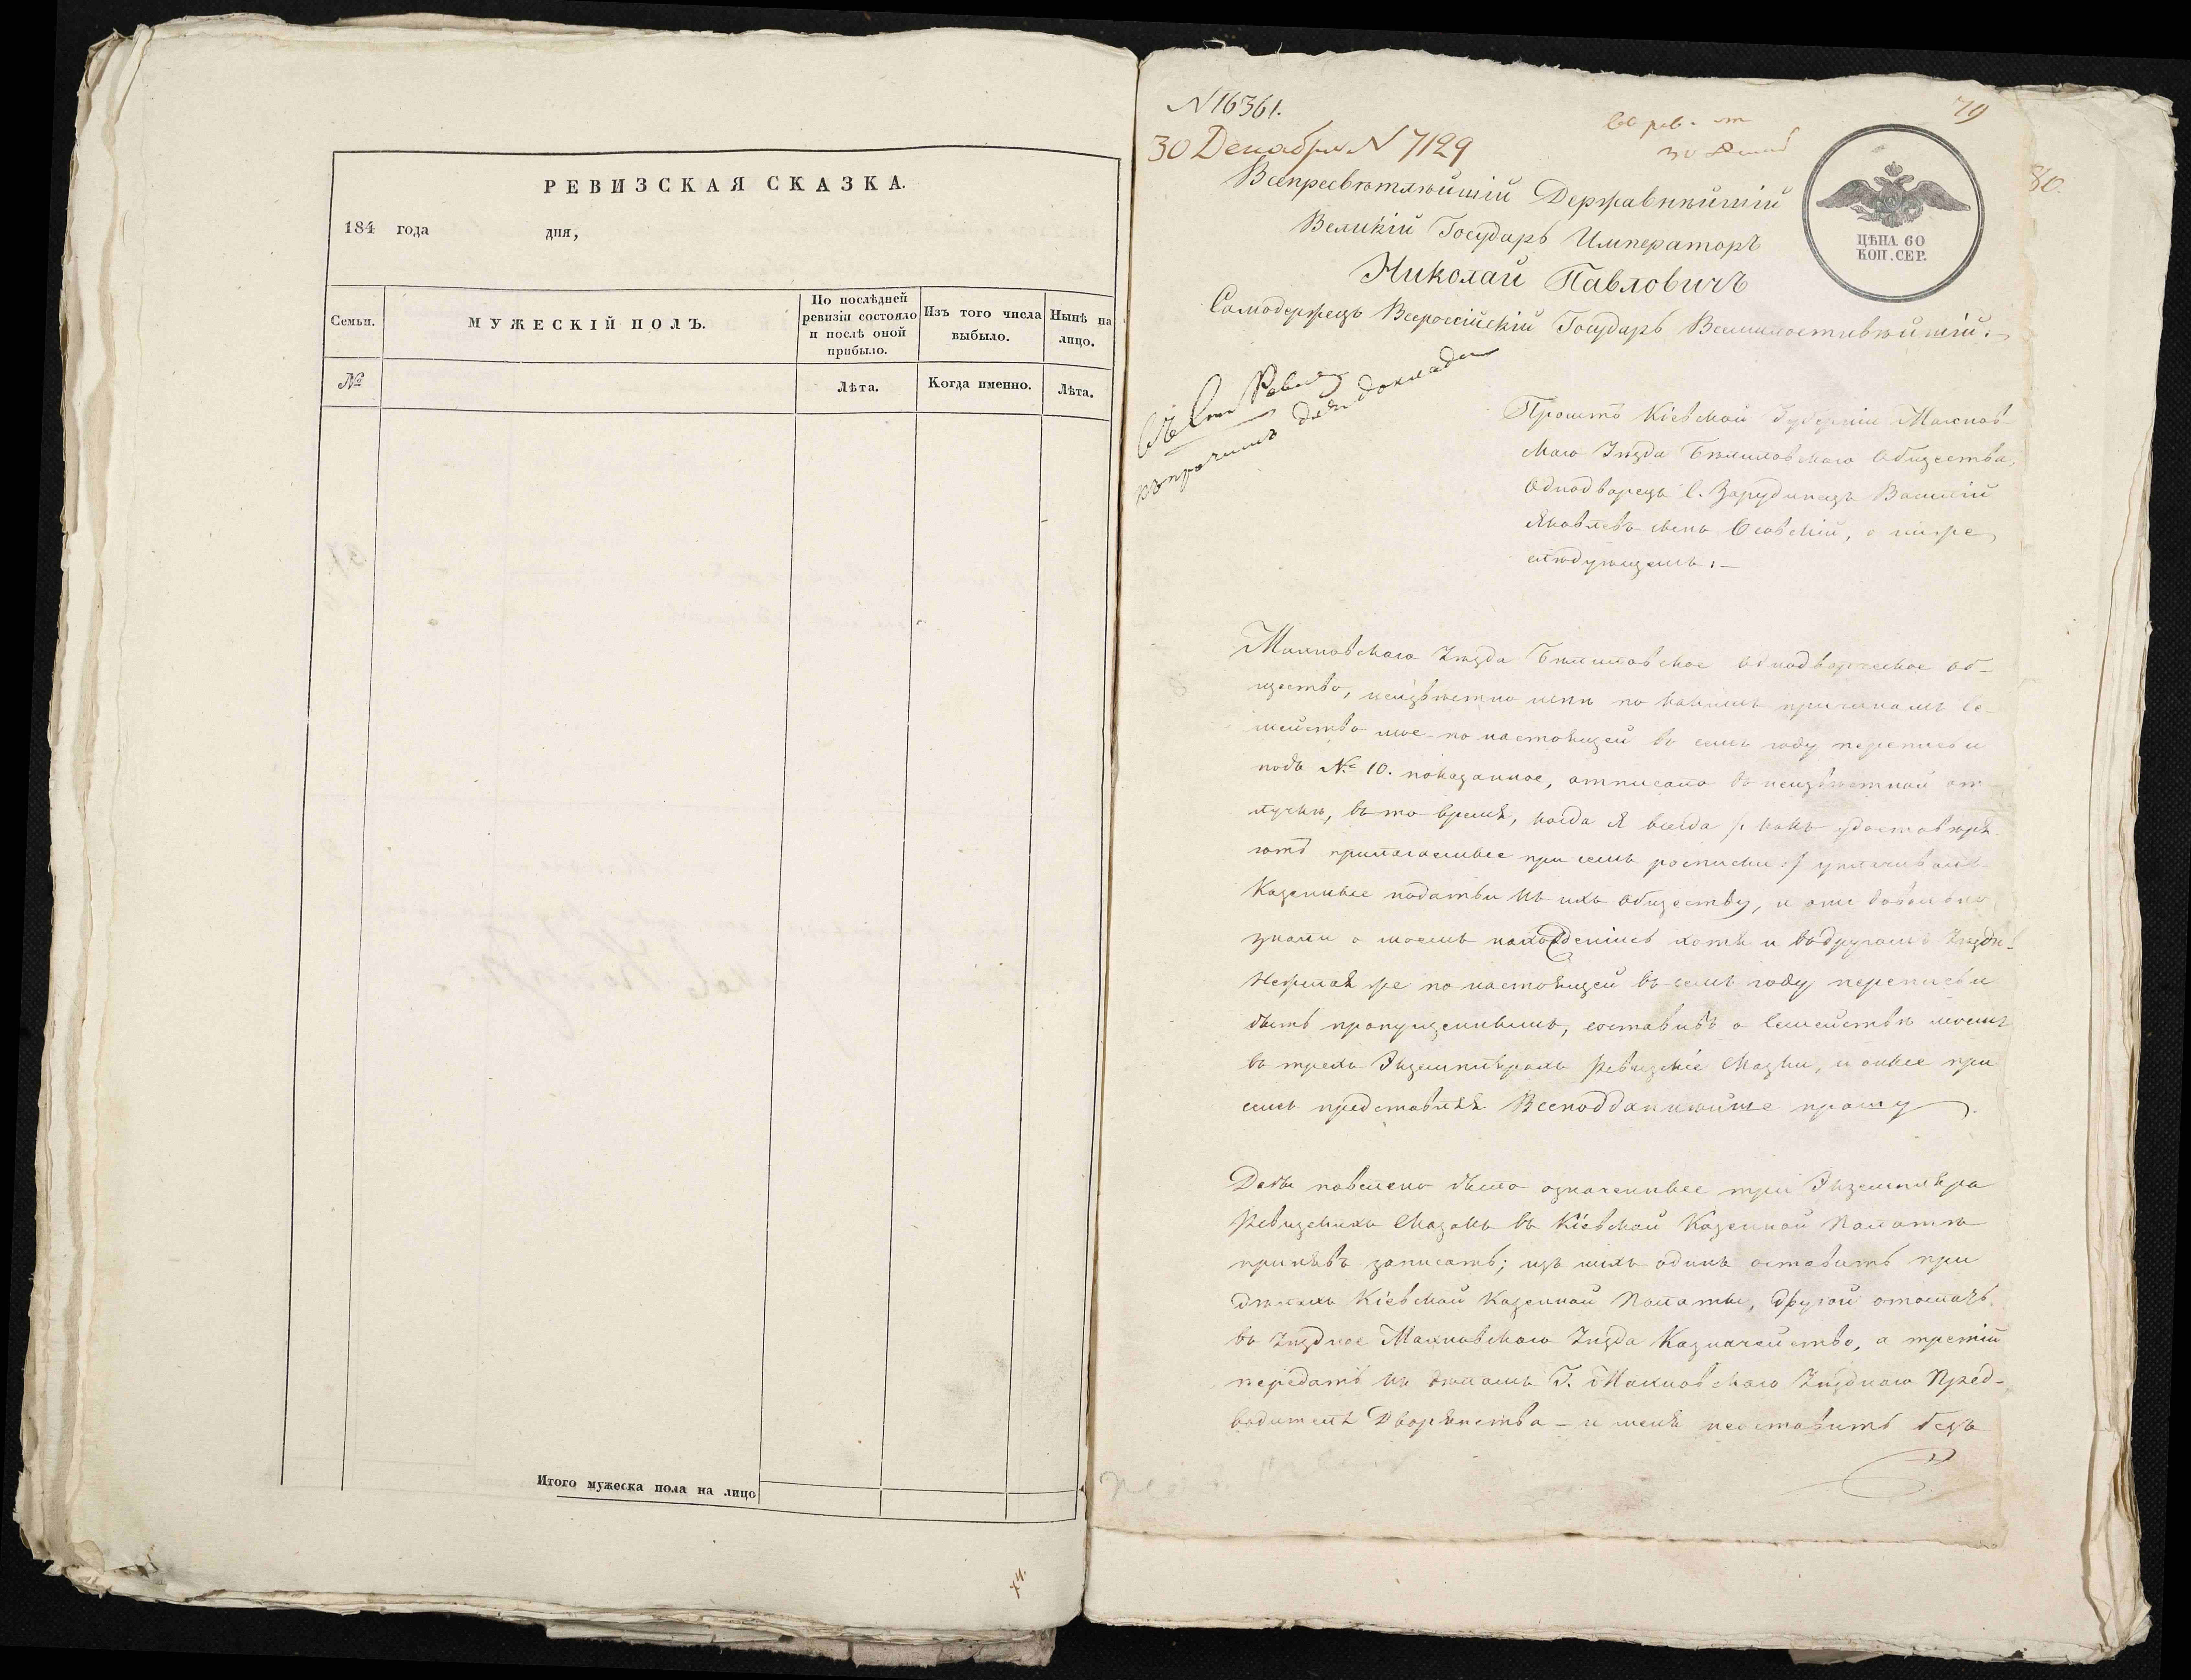 РЕВИЗСКАЯ СКАЗКА.
184 года дня,
Семьи.
МУЖЕСКІЙ ПОЛЪ.
По послѣдней
ревизіи состояло
и послѣ оной
прибыло.
Изъ того числа
выбыло.
Нынѣ на
лицо.
№
Лѣта.
Когда именно.
Лѣта.
Итого мужеска пола на лицо
74.
N 16361.
30 Декабря N 7129
79
80.
ЦѢНА 60
КОП. СЕР.
Всепресвѣтлѣйшій Державнѣйшій
Великій Государь Императоръ
Николай Павловичъ
Самодержецъ Всероссійскій Государь Всемилостивѣйшій:
для доклада
Проситъ Кіевской Губерніи Махнов-
скаго Уѣзда Бѣлиловскаго Общества,
Однодворецъ С. Зарудинецъ Василій
Яковлевъ сынъ Осовскій, о ниже
слѣдующемъ:
Махновскаго Уѣзда Бѣлиловское однодворческое об-
щество, неизвѣстно мнѣ по какимъ причинамъ се-
мейство мое по настоящей въ семъ году переписи
подъ № 10. показанное, отписано въ неизвѣстной от-
лучкѣ, въ то время, когда я всегда /: какъ удостовѣря-
ютъ прилагаемые при семъ росписки :/ уплачивалъ
Казенные подати къ ихъ обществу, и они довольно
знали о моемъ нахожденіи хотя и въ другомъ Уѣздѣ.
Нежелая же по настоящей въ семъ году переписи
быть пропущеннымъ, составивъ о Семействѣ моемъ
въ трехъ Экземплярахъ Ревизскіе Сказки, и оные при
семъ представляя Всеподданнѣйше прошу
Дабы повелено было означенные три Экземпляра
Ревизскихъ Сказокъ въ Кіевской Казенной Палатѣ
принявъ записать; изъ нихъ одинъ оставить при
дѣлахъ Кіевской Казенной Палаты, другой отослать
въ Уѣздное Махновскаго Уѣзда Казначейство, а третій
передать къ дѣламъ Г. Махновскаго Уѣзднаго Пред-
водителя Дворянства - и меня неоставить безъ